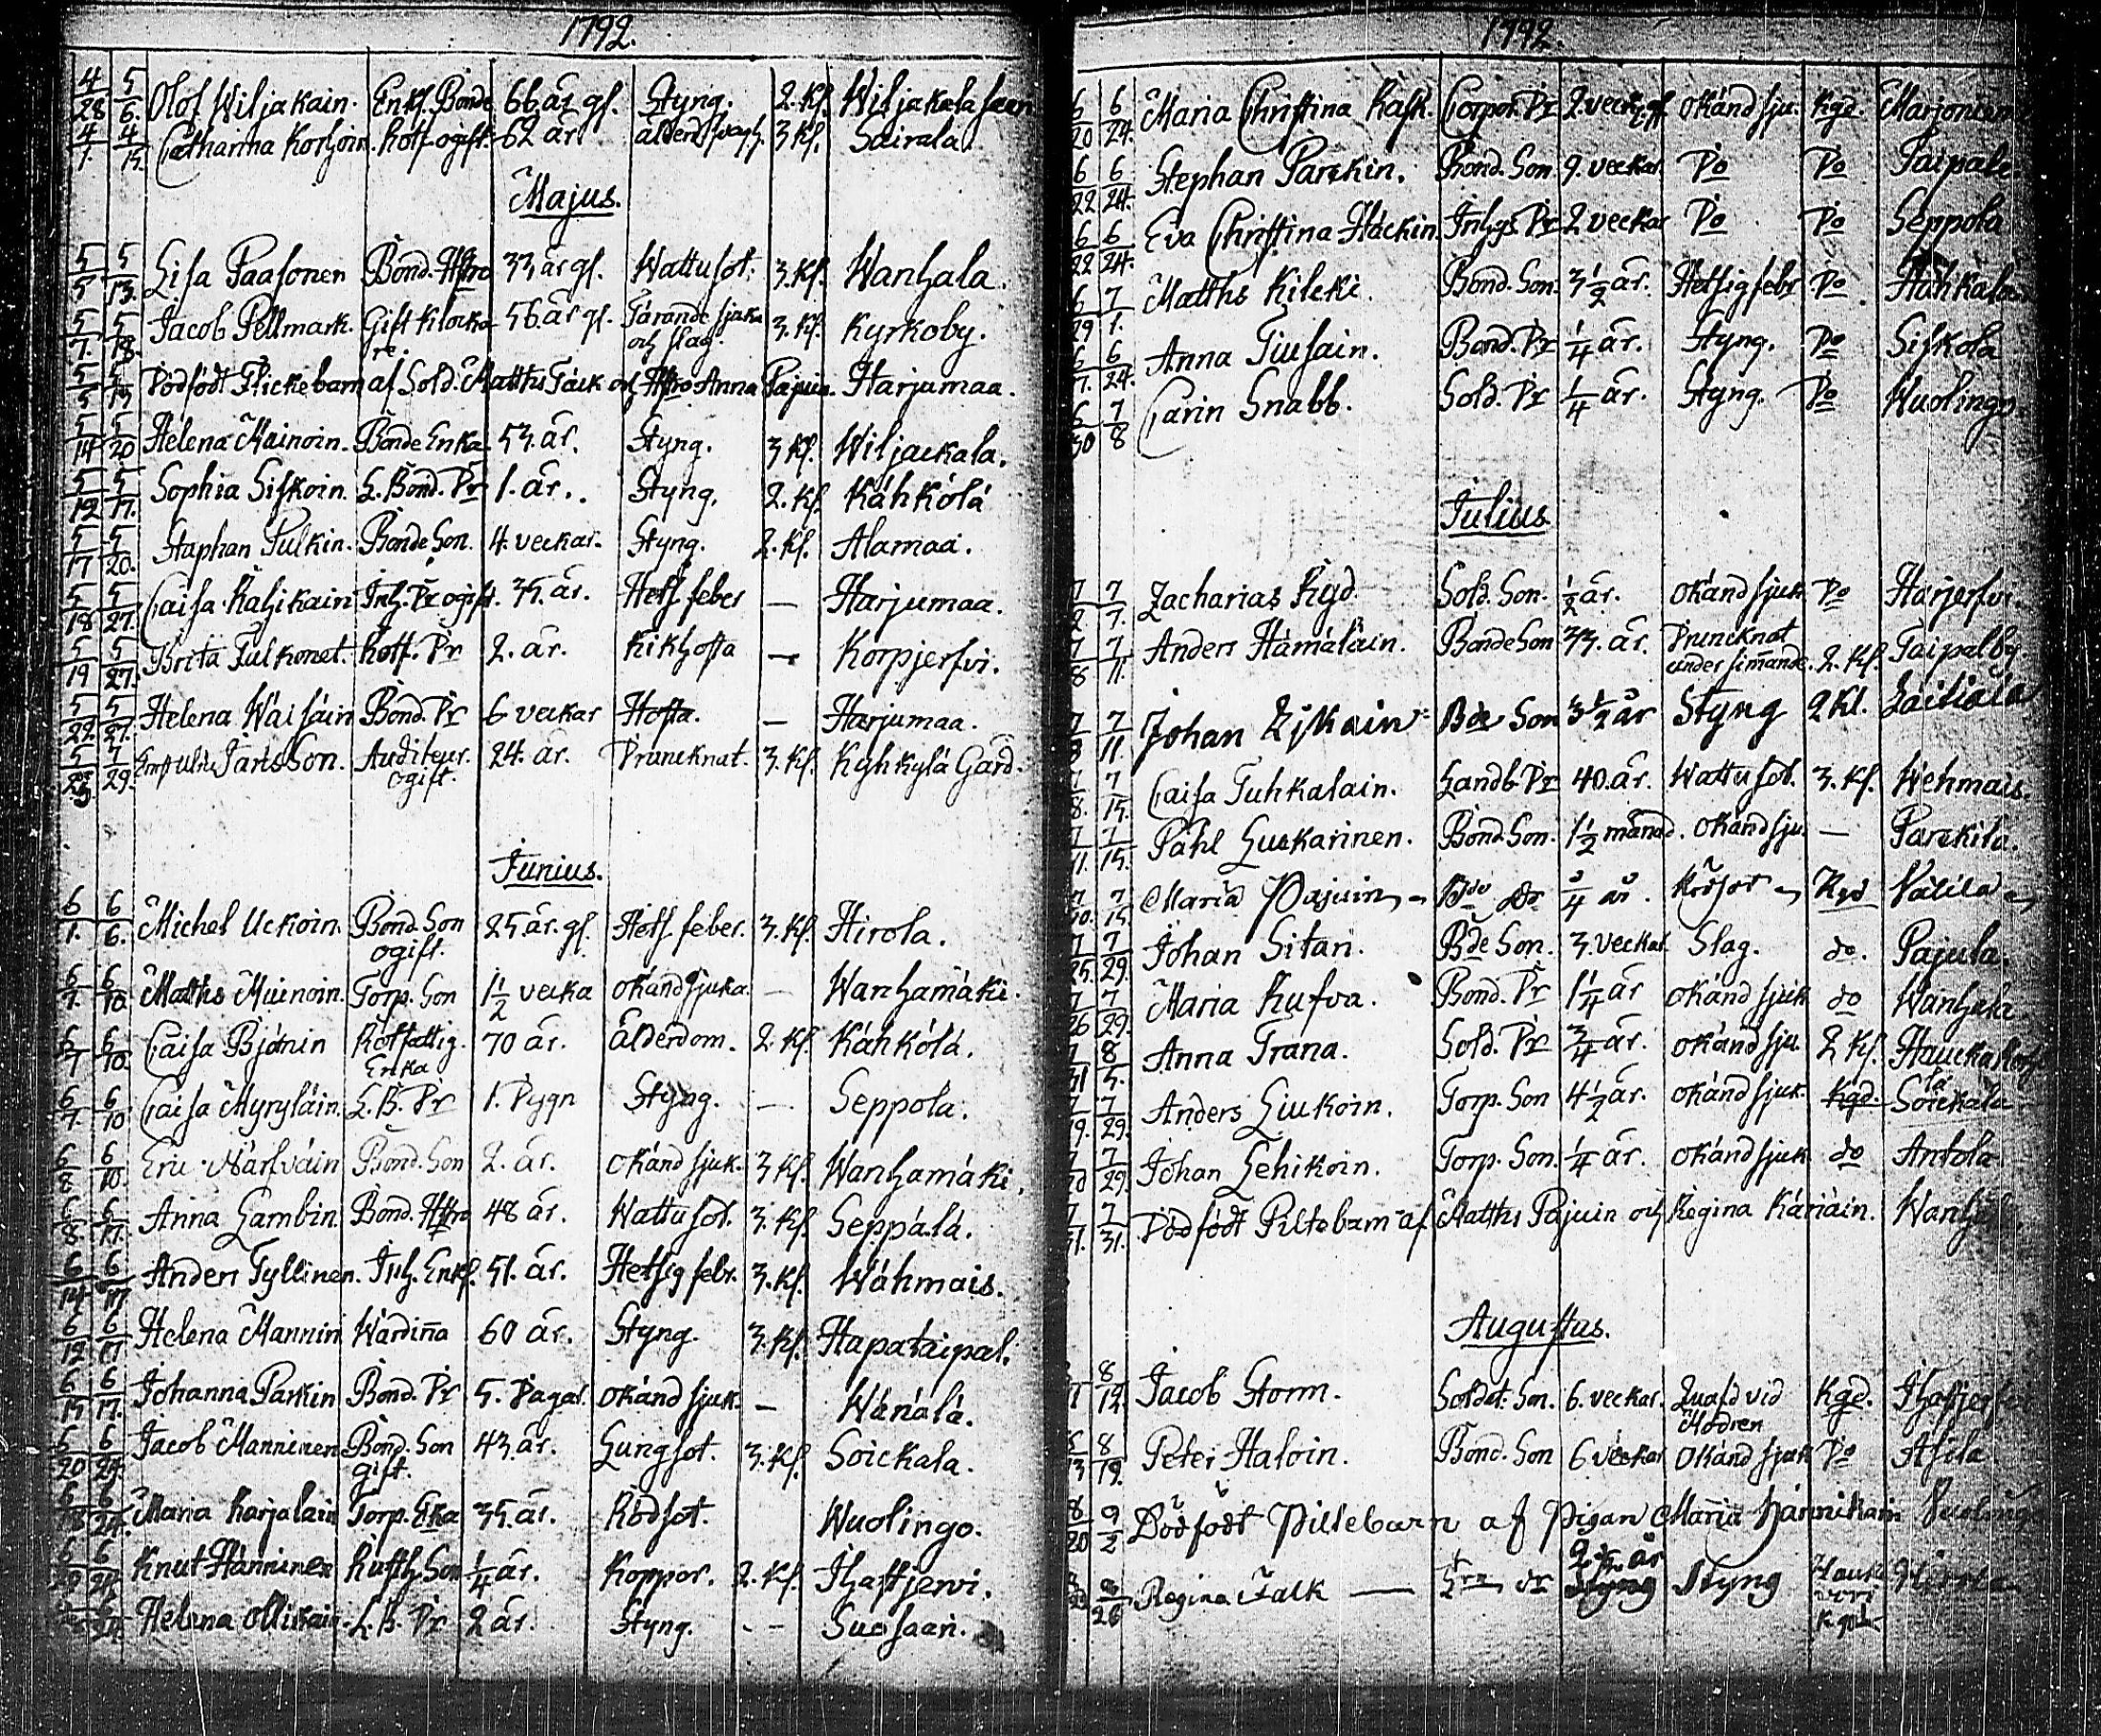 1792.
4/28 5/6. Olof Wiljakain. Enkl. Bonde 66. år gl. Styng. 2. Kl. Wiljakala
4/1. 4/15. Catharina Korhoin. Rotf. ogift. 62 år. 3 Kl. Sairala.
Majus.
5/5 5/13. Lisa Paasonen Bond. Hstro 33 år gl. Wattusot. 3. Kl. Wanhala.
5/7. 5/13. Jacob Pellmark. Gift Klocka 56. år gl. Tärande sjuka 3. Kl. Kyrkoby.
re. och slag.
5/5 5/13 Dödfödt Flickebarn af Sold. Matths Täck och Hstro Anna Pajuin. Harjumaa.
5/14 5/20 Helena Mainoin. Bonde Enka 53. år. Styng. 3 Kl. Wiljackala.
5/12 5/17. Sophia Siskoin. L. Bond. Dr 1. år. Styng. 2. Kl. Kähkölä
5/17 5/20. Staphan Pulkin. Bonde Son. 4. veckar. Styng. 2. Kl. Alamaa.
5/18 5/27. Caisa Rahikain Inh. Dr ogift. 35. år. Hets. feber — Harjumaa.
5/19 5/27. Brita Tulkonet. Rotf. Dr 2. år. Kikhosta — Korpjerfvi.
5/22. 5/27. Helena Wäisäin Bond. Dr 6 veckar Hosta. — Harjumaa.
5/23 7/29. Jarlsson. Auditeur. 24. år. Druncknat. 3. Kl. Kyhkylä Gård.
ogift.
Junius.
6/1. 6/6. Michel Uckoin. Bond. Son 25. år. gl. Hets. feber. 3. Kl. Hirola.
ogift.
6/7. 6/10. Matths Muinoin. Torp. Son 1 1/2 vecka okänd sjuka. — Wanhamäki.
6/7 6/10. Caisa Björnin Rotfattig. 70 år. Ålderdom. 2. Kl. Kähkölä.
Enka
6/7. 6/10 Caisa Myryläin. L. B. Dr 1. Dygn Styng. — Seppola.
6/8 6/10. Eric Närfväin Bond. Son 2. år. okänd sjuk. 3 Kl. Wanhamäki.
6/8. 6/17. Anna Lambin. Bond. Hstro 48 år. Wattusot. 3. Kl. Seppälä.
6/14 6/17 Anders Tyllinen. Inh. Enkl. 51. år. Hetsig febr. 3. Kl. Wähmais.
6/12 6/17 Helena Mannin Wärdinna 60 år. Styng. 3. Kl. Hapataipal.
6/15 6/17. Johanna Parkin Bond. Dr 5. Dagar. okänd sjuk. — Wänälä.
6/20 6/24. Jacob Manninen Bond. Son 43. år. Lungsot. 3. Kl. Soickala.
gift.
6/24. Maria Karjalain Torp. Eka 35. år. Rödsot. Wuolingo.
Knut Hänninen Son 1/4 år. Koppor. 2. Kl. Ihastjerwi.
Helena Ollikain. L. B. Dr 2 år. Styng. — Suosaari.
1792.
6/20 6/24. Maria Christina Rask. Corpor. Dr 2 veck. gl. okänd sju. Kgd.
6/22 6/24. Stephan Parckin. Bond. Son 9. veckar. Do Do Taipale.
6/22 6/24. Eva Christina Häckin. Inhys Dr 2 veckar Do Do Seppola
6/29 7/1. Matths Kilcki. Bond. Son. 3 1/2 år. Hetsig febr Do Hähkälä
6/7. 6/24. Anna Tiusain. Bond. Dr 1/4 år. Styng. Do Siskola
6/30 7/8 Carin Snabb. Sold. Dr 1/4 år. Styng. Do Wuolingo.
Julius
7/2 7/7. Zacharias Ryd. Sold. Son. 1/2 år. okänd sjuk. Do Harjerfvi.
7/8 7/11. Anders Hämäläin. Bonde Son 33. år. Druncknat 2. Kl. Taipalby
under simmande.
7/8 7/11. Johan Ziskain Bde Son 3 1/2 år Styng 2 Kl. Laitiala
7/8. 7/15. Caisa Tuhkalain. Landb. Dr 40. år. Wattusot. 3. Kl. Wehmais.
7/11. 7/15. Påhl Luckarinen. Bond. Son. 1 1/2 månad. okänd sju. — Parckila.
7/10. 7/15 Maria Pajuin Bde dr 3/4 år. Rödsot Kgd Välilä
7/25. 7/29. Johan Sitari. Bde Son. 3. veckar. Slag. do. Pajula.
7/26 7/29. Maria Kufva. Bond. Dr 1 1/4 år okänd sjuk do Wanhala.
7/31 8/5. Anna Trana. Sold. Dr 3/4 år. okänd sju. 2 Kl.
7/19. 7/29. Anders Liukoin. Torp. Son 4 1/2 år. okänd sjuk. Kgd. Soickala
7/29. Johan Lehikoin. Torp. Son. 1/4 år. okänd sjuk do Antola
7/31. 7/31. Dödfödt Piltebarn af Matths Pajuin och Regina Käriäin.
Augustus.
8/12. Jacob Storm. Soldat. Son. 6. veckar. Quafd vid Kgd.
Modren
8/19. Peter Haloin. Bond. Son 6 veckar okänd sjuk Do Asila
8/20 9/2 Dödfödt Piltebarn af Pigan Maria Hännikain Vuolingo
Regina Falk — dr 2 1/2 år Styng